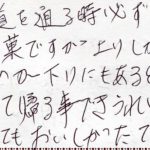 道を通る時必ず
菓ですが上りし
のか下りにもある
て帰る事できうれし
てもおいしかったで